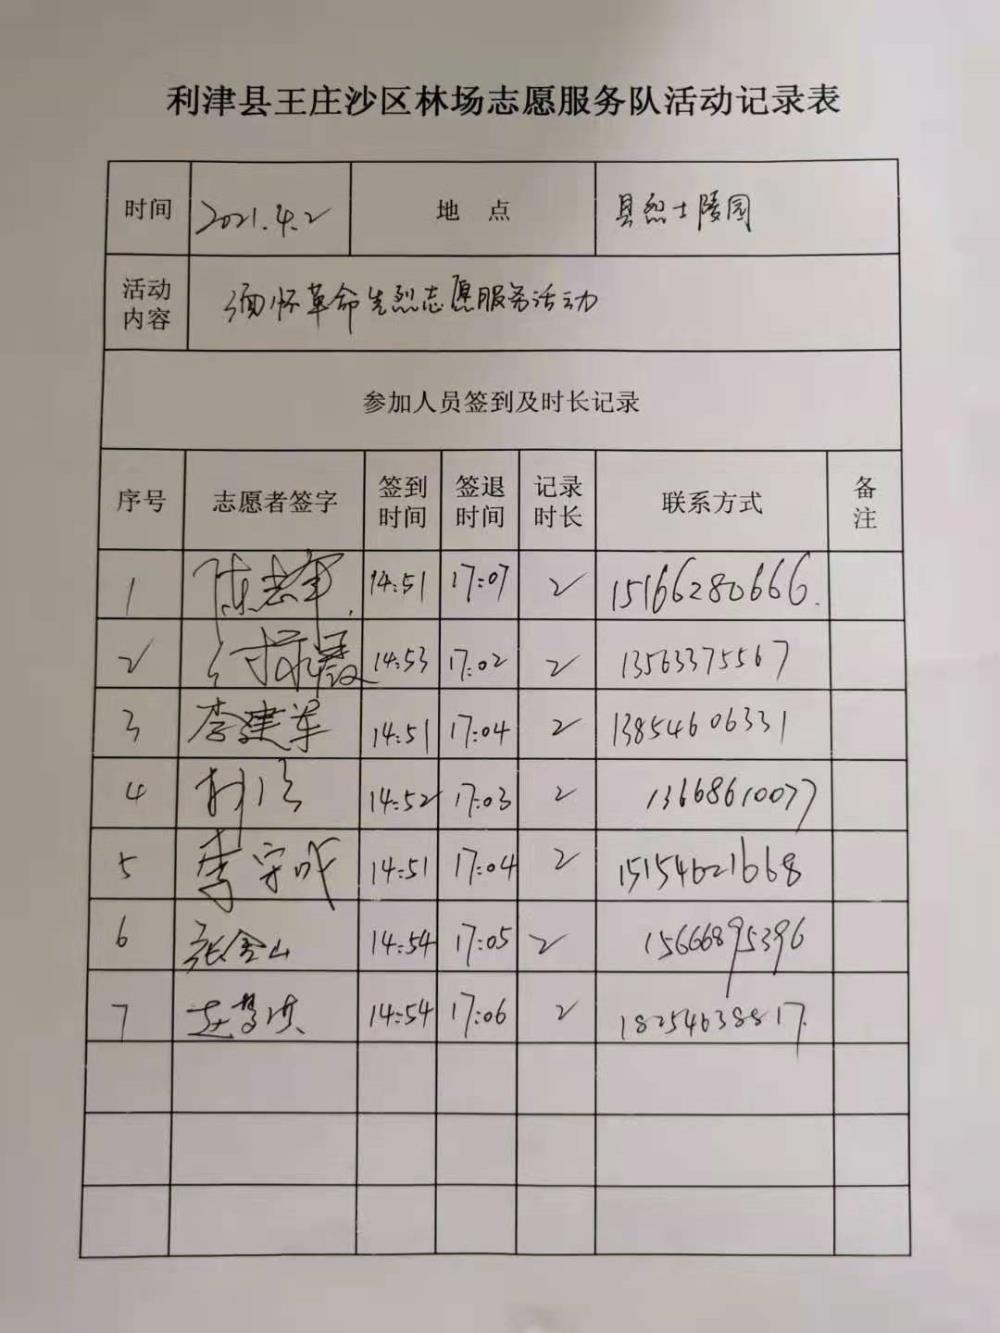 利津县王庄沙区林场志愿服务队活动记录表
时间 2021.4.2 地 点 县烈士陵园
活动内容 缅怀革命先烈志愿服务活动
参加人员签到及时长记录
序号 志愿者签字 签到时间 签退时间 记录时长 联系方式 备注
1 陈志军 14:51 17:07 2 15166280666.
2 14:53 17:02 2 13563375567
3 李建军 14:51 17:04 2 13854606331
4 14:52 17:03 2 13668610077
5 李守成 14:51 17:04 2 15154621668
6 张金山 14:54 17:05 2 15666895396
7 14:54 17:06 2 18254638817.